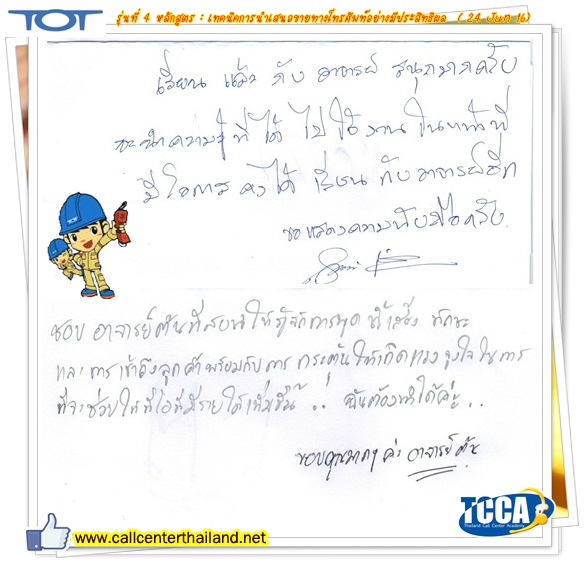 TOT
รุ่นที่ 4 หลักสูตร : เทคนิคการนำเสนอขายทางโทรศัพท์อย่างมีประสิทธิผล ( 24 Jun 16)
เรียน แล้ว กับ อาจารย์ สนุกมากครับ
จะนำความรู้ที่ได้ ไปใช้งานในหน้าที่
มีโอกาส คงได้ เรียน กับ อาจารย์อีก
ขอแสดงความนับถือครับ
ชอบ อาจารย์ต้นที่สอนให้รู้จักการพูด น้ำเสียง ทักษะ
และ การเข้าถึงลูกค้าพร้อมกับการ กระตุ้นให้เกิดแรงจูงใจในการ
ที่จะช่วยให้ทีโอทีมีรายได้เพิ่มขึ้น .. ฉันต้องทำได้ค่ะ ..
ขอบคุณมากๆ ค่ะ อาจารย์ต้น
TCCA
Thailand Call Center Academy
www.callcenterthailand.net